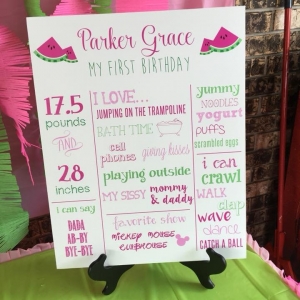 Parker Grace
MY FIRST BIRTHDAY
17.5
pounds
AND
28
inches
i can say
DADA
AB-BY
BYE-BYE
I LOVE...
JUMPING ON THE TRAMPOLINE
BATH TIME
cell
phones
giving kisses
playing outside
MY SISSY
mommy
& daddy
favorite show
MICKEY MOUSE
CLUBHOUSE
yummy
NOODLES
yogurt
puffs
scrambled eggs
i can
crawl
WALK
clap
wave
DANCE
CATCH A BALL